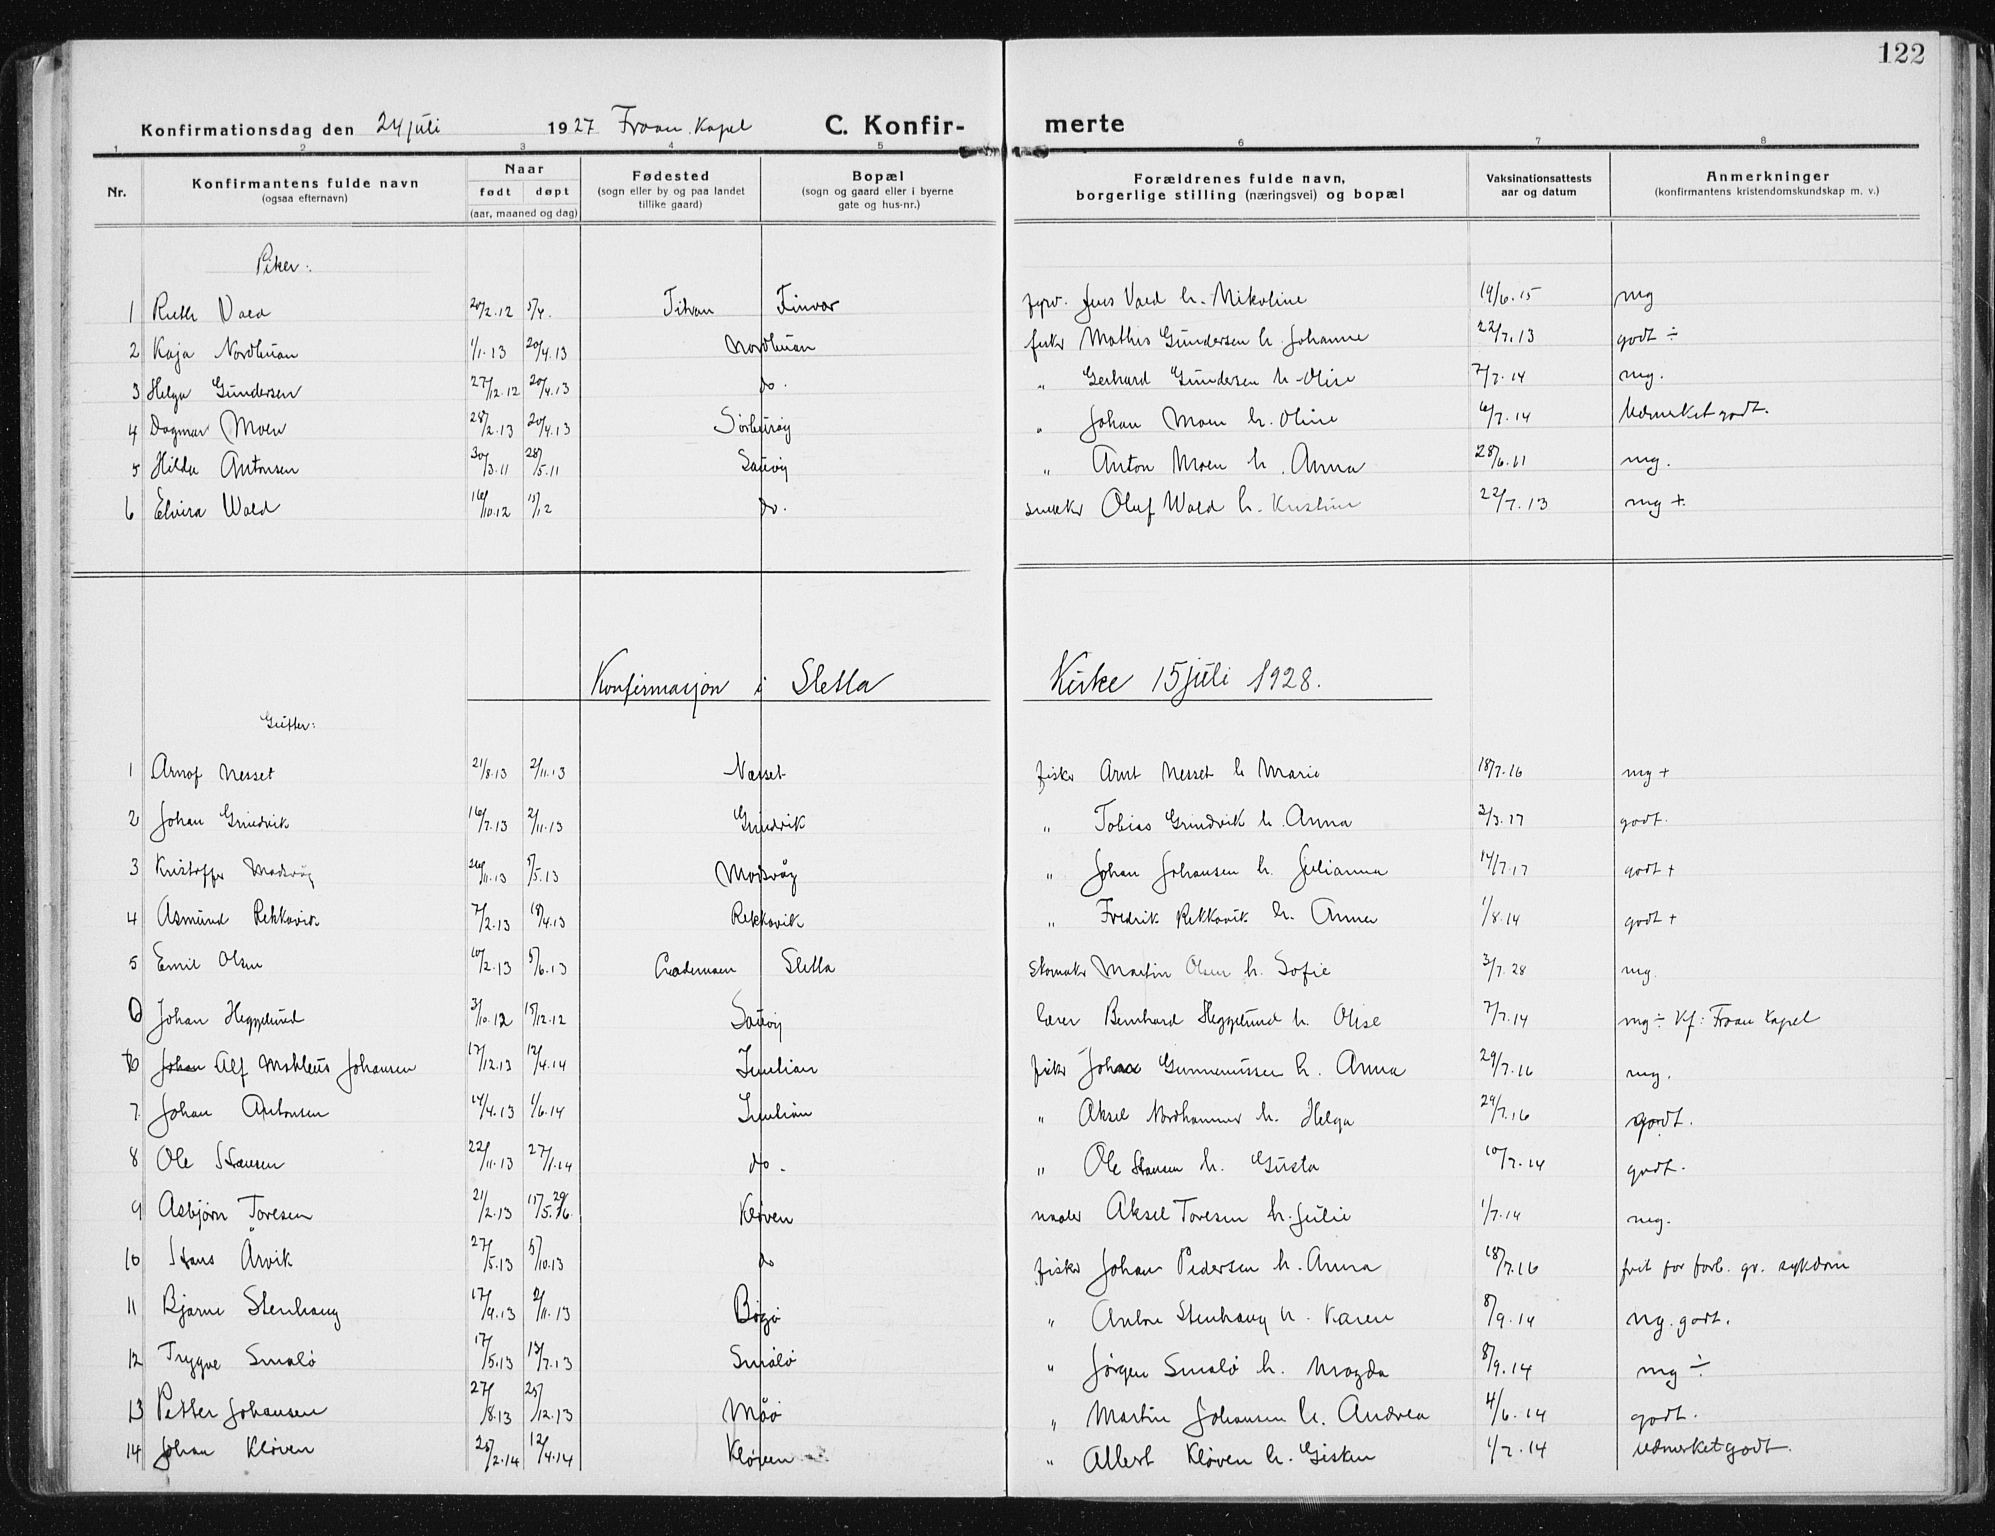 122
Konfirmationsdag den 24 juli 1927 Froan Kapel C. Konfir- merte
1 2 3 4 5 6 7 8
Nr. Konfirmantens fulde navn (ogsaa efternavn) Naar født døpt (aar, maaned og dag) Fødested (sogn eller by og paa landet tillike gaard) Bopæl (sogn og gaard eller i byerne gate og hus-nr.) Forældrenes fulde navn, borgerlige stilling (næringsvei) og bopæl Vaksinationsattests aar og datum Anmerkninger (konfirmantens kristendomskundskap m. v.)
Piker:
1 Ruth Vold 20/2.12 5/4. Titran Finvær fyrv. Jens Vold h. Mikoline 19/6.15 mg
2 Kaja Nordbuan 1/1.13 20/4.13 Nordbuan fisker Mathis Gundersen h. Johanne 22/7.13 godt ÷
3 Helga Gundersen 27/12.12 20/4.13 do. " Gerhard Gundersen h. Olise 7/7.14 mg.
4 Dagmar Moen 28/2.13 20/4.13 Sørburøy " Johan Moen h. Oline 6/7.14 Udmerket godt.
5 Hilda Antonsen 30/3.11 28/5.11 Sauøy " Anton Moen h. Anna 28/6.11 mg.
6 Elvira Wold 16/10.12 15/12 do. snekker Oluf Wold h. Kristine 22/7.13 mg +
Konfirmasjon i Sletta Kirke 15 juli 1928.
Gutter:
1 Arnof Nesset 21/8.13 2/11.13 Nesset fisker Arnt Nesset h. Marie 18/7.16 mg +
2 Johan Grindvik 16/7.13 2/11.13 Grindvik " Tobias Grindvik h. Anna 2/3.17 godt.
3 Kristoffer Madsvåg 5/5.13 Madsvåg " Johan Johansen h. Julianna 14/7.17 godt +
4 Asmund Rekkavik 7/2.13 18/4.13 Rekkavik " Fredrik Rekkavik h. Anna 1/8.14 godt +
5 Emil Olsen 10/2.13 5/6.13 Sletta Skomaker Martin Olsen h. Sofie 3/7.28 mg.
0 Johan Heggelund 3/10.12 15/12.12 Sauøy lærer Bernhard Heggelund h. Olise 7/7.14 mg ÷ Kf: Froan Kapel
6 Johan Alf Matheus Johansen 17/12.13 12/4.14 Inntian fisker Johan Gunnerussen h. Anna 29/7.16 mg.
7 Johan Antonsen 14/4.13 1/6.14 Inntian " Aksel Nordhammer h. Helga 29/7.16 godt.
8 Ole Stansen 22/11.13 27/1.14 do. " Ole Stansen h. Gusta 10/7.14 godt.
9 Asbjørn Toresen 21/2.13 Kløven maaler Aksel Toresen h. Julie 1/7.14 mg.
10 Hans Årvik 27/5.13 5/10.13 do fisker Johan Pedersen h. Anna 18/7.16 frit for forb. gr. sykdom
11 Bjarne Stenhaug 17/9.13 2/11.13 Bogø " Anton Stenhaug h. Karen 8/9.14 mg. godt.
12 Trygve Smalø 17/5.13 13/7.13 Smålø " Jørgen Smalø h. Magda 8/9.14 mg ÷
13 Petter Johansen 27/8.13 25/12.13 Måø " Martin Johansen h. Andrea 4/6.14 godt.
14 Johan Kløven 25/2.14 12/4.14 Kløven " Albert Kløven h. Gisken 1/7.14 Udmerket godt.